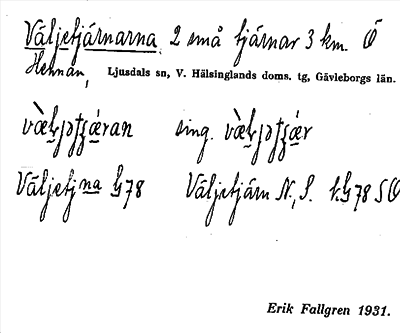 Väljetjärnarna, 2 små tjärnar 3 km. Ö
Hennan, Ljusdals sn, V. Hälsinglands doms. tg, Gävleborgs län.
sing.
Väljetjna 78 Väljetjärn N., S. 78 SO
Erik Fallgren 1931.